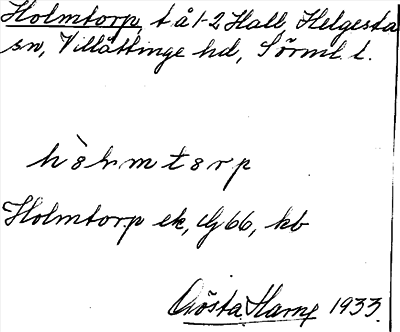 Holmtorp, t å 1-2 Hall, Helgesta
sn, Villåttinge hd, Sörml. l.
Holmtorp ek, Ig 66, kb
Gösta Harng 1933.